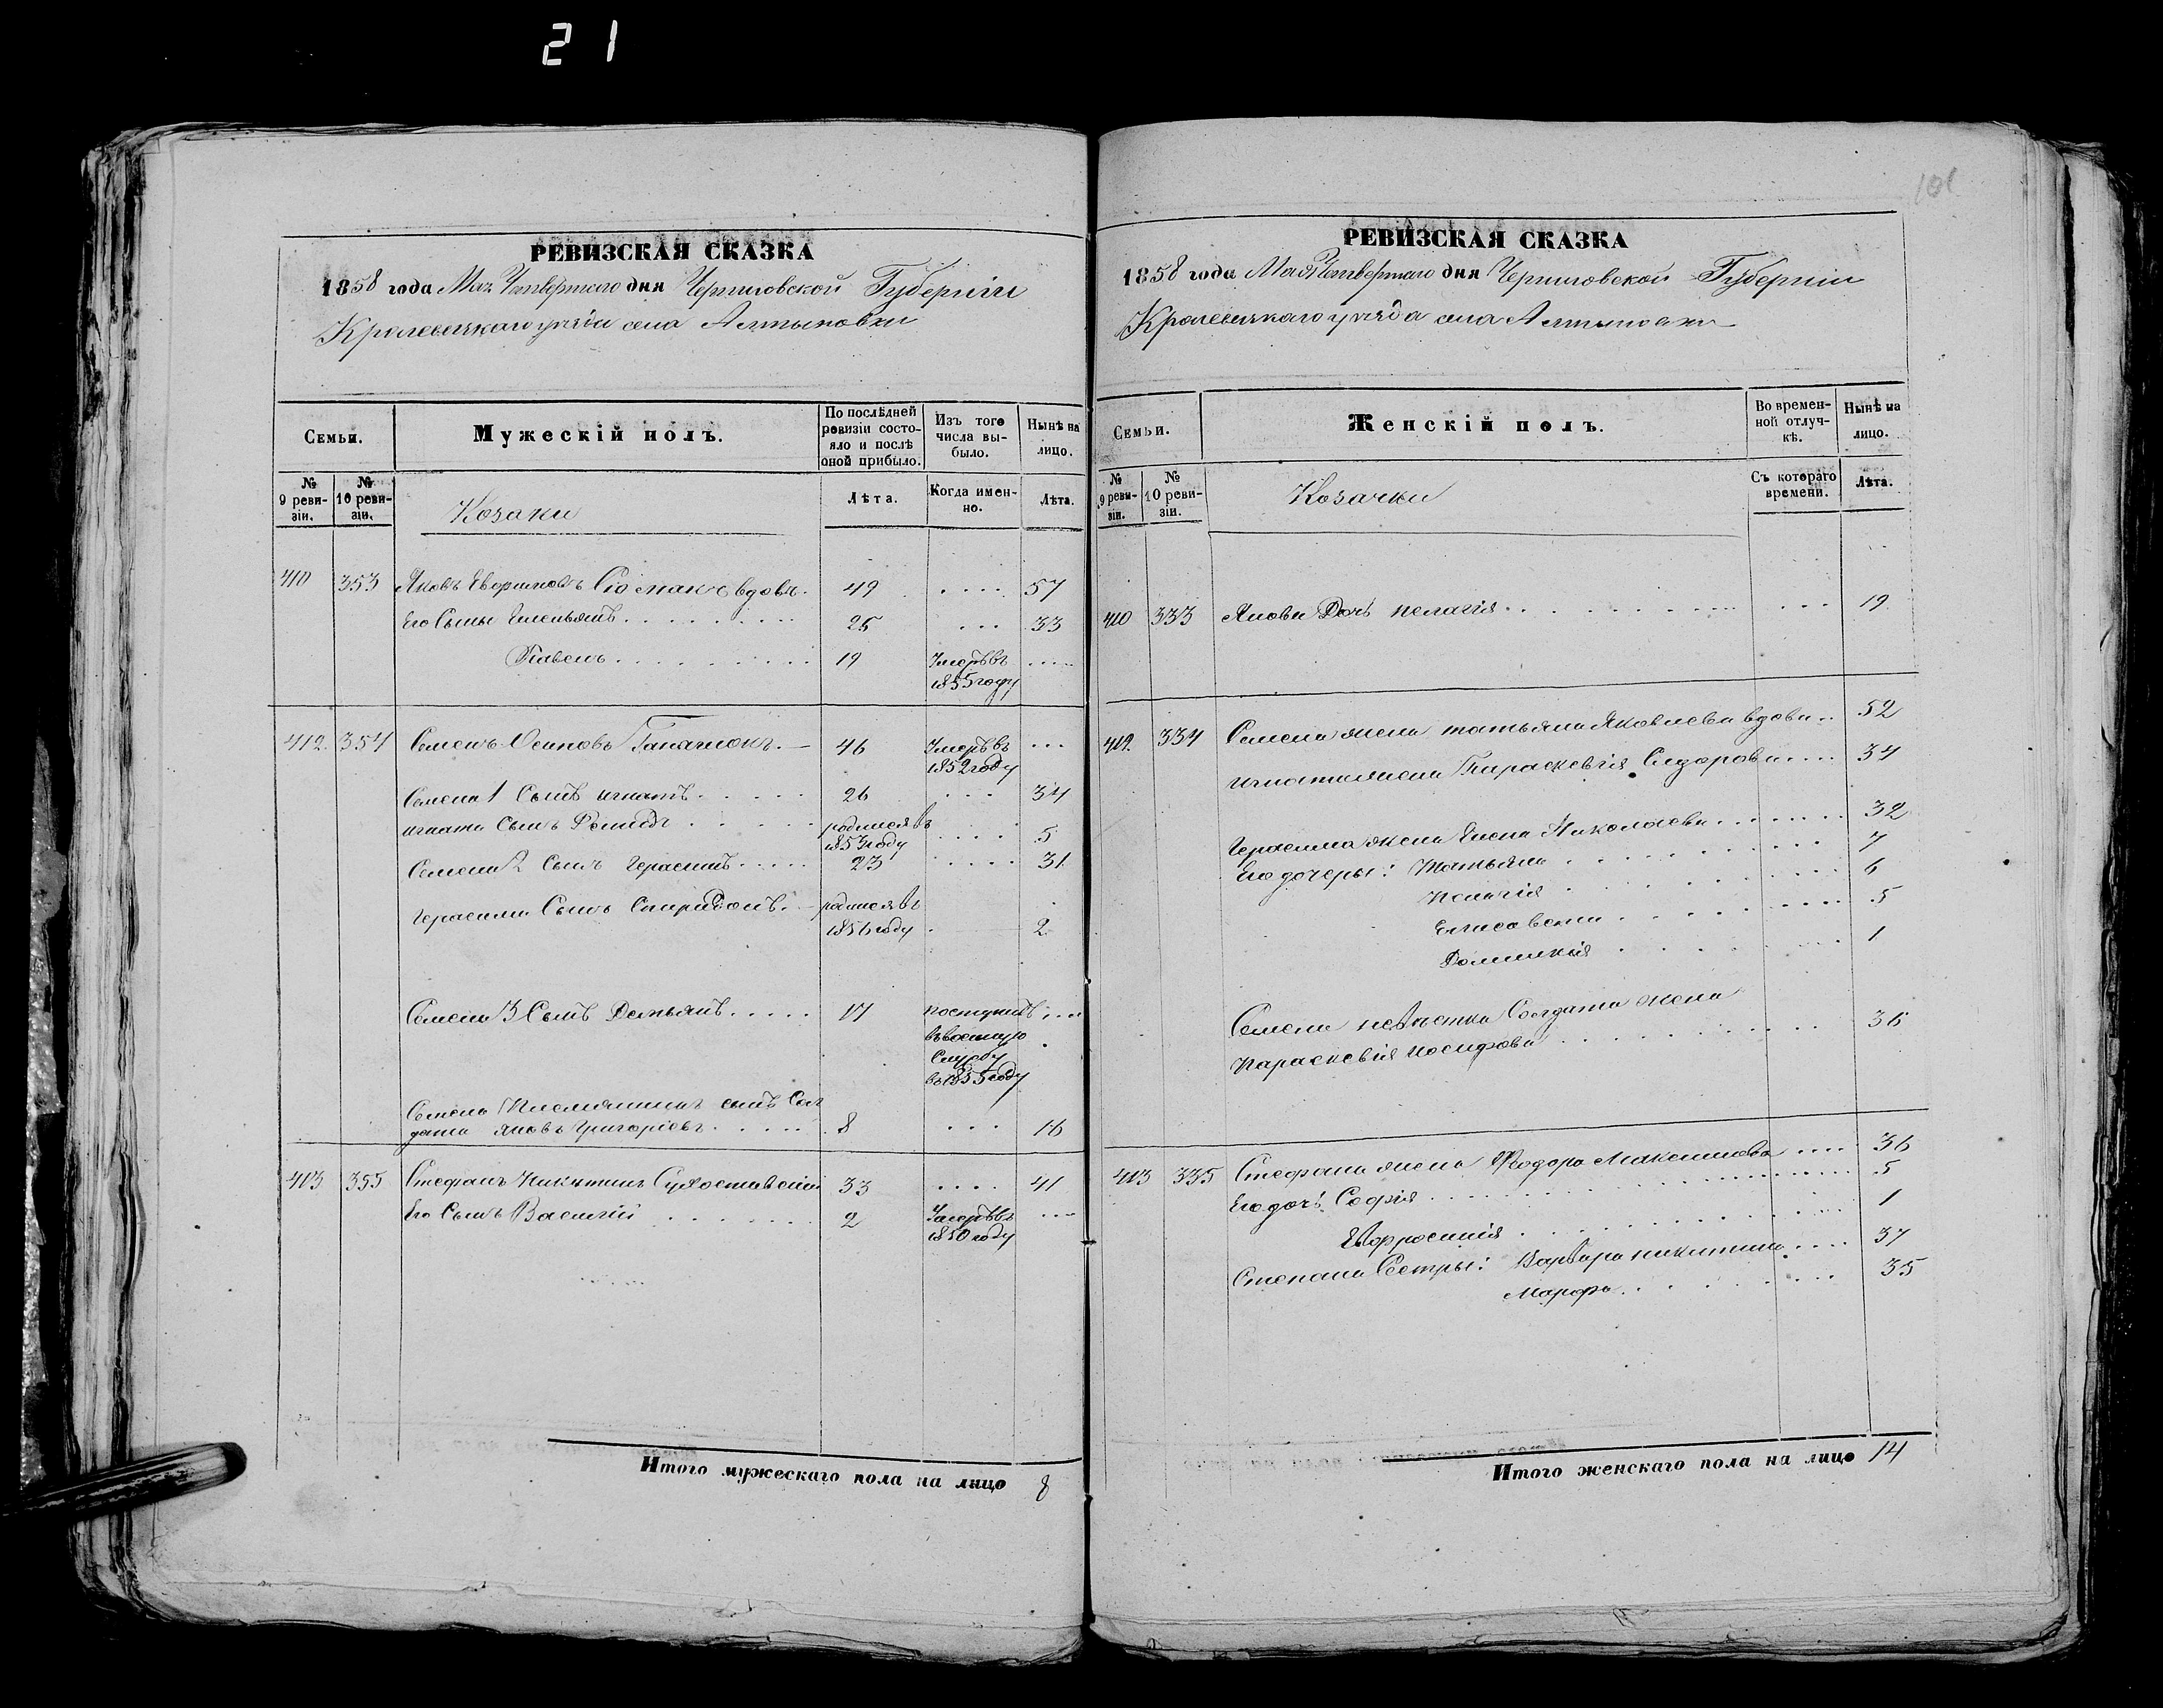 21
РЕВИЗСКАЯ СКАЗКА
1858 года Мая Четвертого дня Черниговской Губерніи
Кролевецкаго уезда села Алтыновки
Семьи.
Мужескій полъ.
По послѣдней ревизіи состояло и послѣ оной прибыло.
Изъ того числа выбыло.
Нынѣ на лицо.
№ 9 ревизіи.
№ 10 ревизіи.
Козаки
Лѣта.
Когда именно.
Лѣта.
410 353 Яковъ вдовъ. 49 .... 57
Его Сыны Емельянъ 25 ... 33
Павелъ 19 Умеръ въ ....
1855 году
412. 354 Семенъ Осиповъ 46 Умеръ въ ...
1852 году
Семена 1 Сынъ игнатъ 26 ... 34
игната Сынъ родился въ
1853 году .... 5
Семена 2 Сынъ Герасимъ 23 ..... 31
Герасима Сынъ Спиридонъ. родился въ
1856 году 2
Семена 3 Сынъ Демьянъ 17 поступилъ ...
въ военную
Службу
въ 1855 году
Семена Племянникъ сынъ Сол
дата яковъ Григоріевъ 8 ... 16
413 355 Стефанъ Никитинъ 33 .... 41
Его Сынъ Василій 2 Умеръ въ ....
1850 году
Итого мужескаго пола на лицо 8
101
РЕВИЗСКАЯ СКАЗКА
1858 года Мая Четвертаго дня Черниговской Губерніи
Кролевецкаго уезда села Алтыновки
Семьи.
Женскій полъ.
Во временной отлучкѣ.
Нынѣ на лицо.
№ 9 ревизіи.
№ 10 ревизіи.
Козачки
Съ котораго времени.
Лѣта.
410 333 Якова Дочь пелагія ... 19
412. 334 Семена жена татьяна Яковлева вдова .. 52
игната жена Параскевія Сидорова .... 34
Герасима жена Елена Николаева 32
Его дочеры: Татьяна 7
Пелагія 6
Елисавета 5
Домникія 1
Семена невѣстка Солдата жена
Параскевія иосифова 36
413 335 Стефана жена Феодора Максимова .... 36
Его дочь София 5
Евфросинія 1
Степана Сестры: Варвара никитина .... 37
Марфа 35
Итого женскаго пола на лицо 14